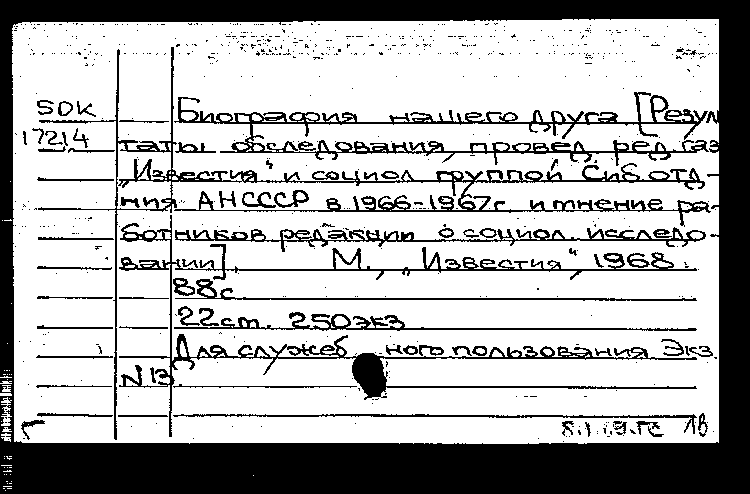 SDK
17214
Биография нашего друга [Резул
таты обследования, провед. ред. газ
„Известия" и социол группой Сиб. отд-
ния АН СССР в 1966-1967г. и мнение ра-
ботников редакции о социол. исследо-
вании]. М., „Известия", 1968.
88с.
22см. 250 экз.
Для служебного пользования Экз.
N 13.
18